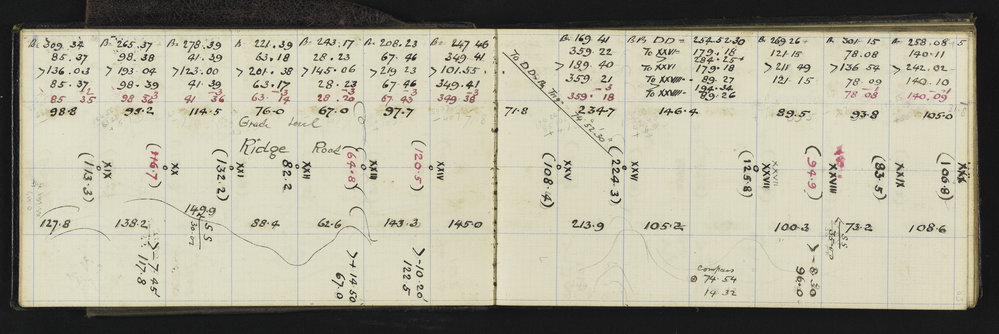 B= 309.34 B= 265.37 B= 278.39 B= 221.39 B= 243.17 B= 208.23 B= 247 46
85.37 98.38 41.39 63.18 28.23 67.46 349.41
>136.03 >193 04 >123.00 >201.38 >145.06 >219 23 >101.55
85.37 98.39 41.39 63.17 28.23 67 46 349.41
-2 -3 -3 -3 -3 -3 -3
85 35 98 36 41 36 63.14 28.20 67 43 349 38
98.8 95.2 114.5 76.0 67.0 97.7
Grade Level
Ridge Road
XIX XX XXI XXII XXIII XXIV
(113.3) (116.7) (132.2) 82.2 (64.8) (120.5)
149.9
55
30.07
127.8 138.2 88.4 62.6 143.3 145.0
>-7.45'
117.8
>+14.50
67.0
>-10.20'
122.5
To DD=
B= 169.41 B= DD = 254.32.30 B= 269.26 B= 301.15 B= 258.08.5
359.22 To XXVI- 179.18 121.15 78.08 140.11
284.25
>189.40 To XXVI 179.18 >211 49 >136 54 >242.02
359.21 To XXVIII- 89.27 121.15 78 09 140.10
-3 194.34 -1 -1
359.18 To XXVIII- 89.26 78 08 140.09
74.52.30
71.8 234.7 146.4 89.5 93.8 105.0
XXV XXVI XXVII XXVIII XXVIII XXIX XXX
(108.4) (224.3) (125.8) (94.9) (83.5) (106.8)
213.9 105.2 100.3 73.2 108.6
55
>-8.30
96.0
Compass
⊙ 74.54
14.32